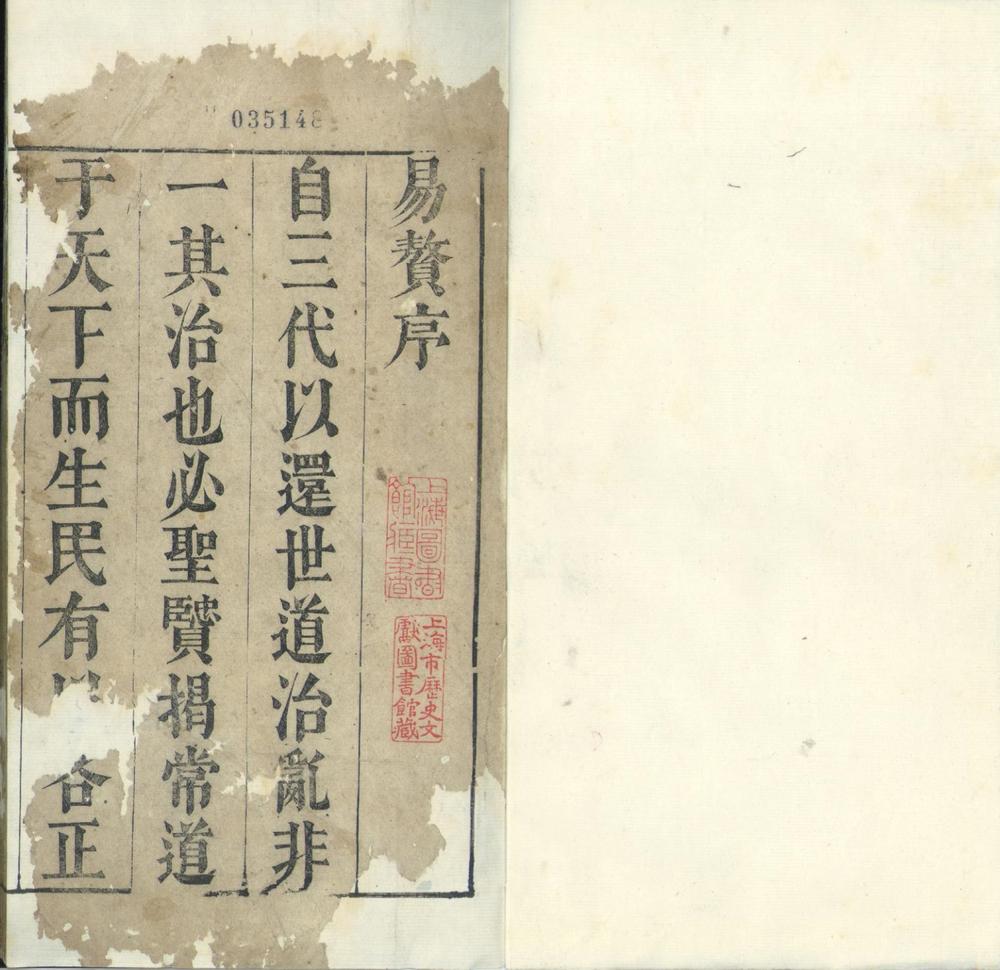 035148
易贅序
自三代以還世道治亂非
一其治也必聖賢揭常道
于天下而生民有 合正
上海圖書
館𧸘書
上海市歷史文
獻圖書館藏